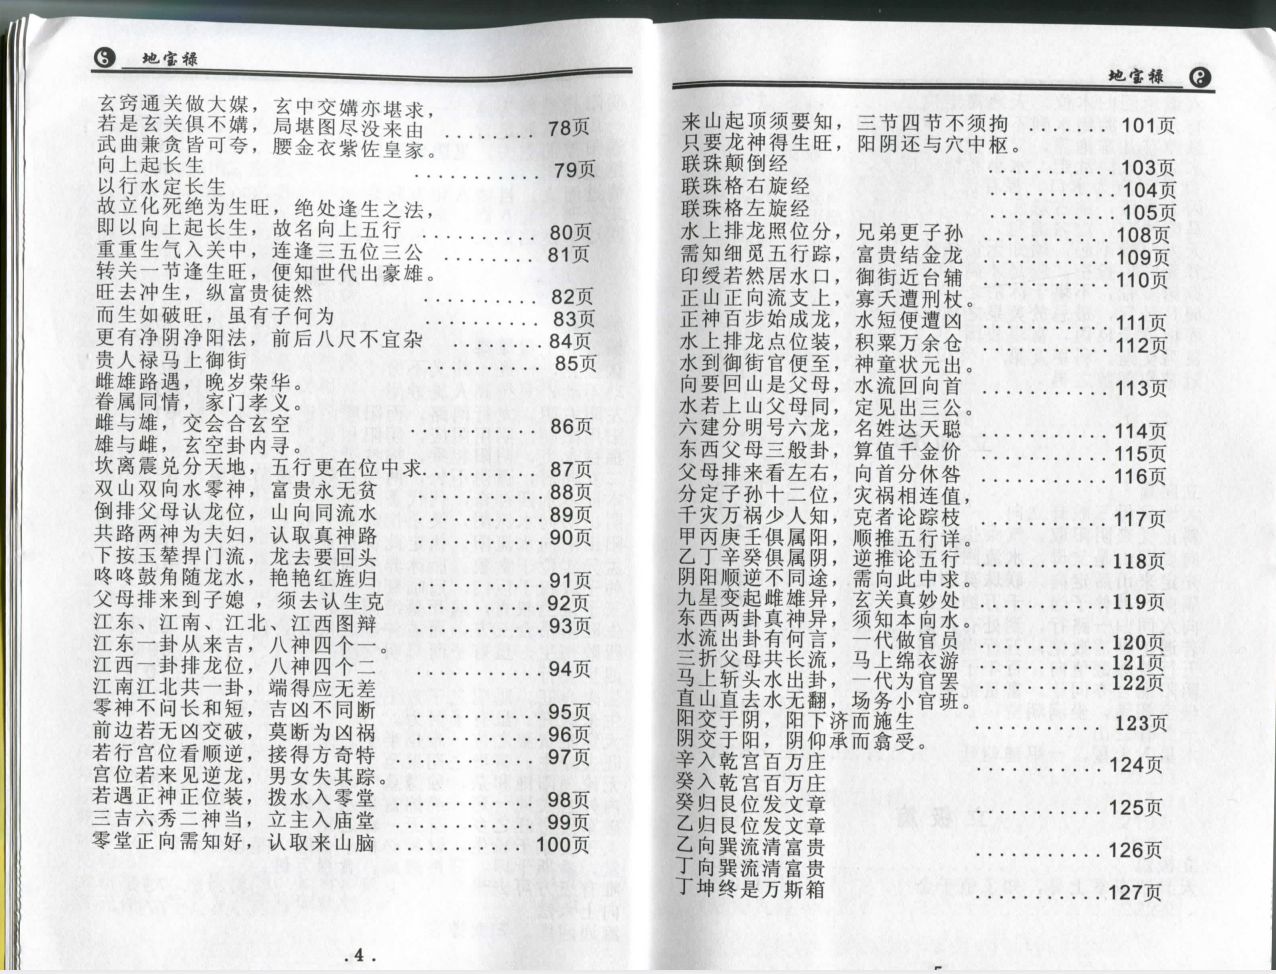 地宝禄
玄窍通关做大媒，玄中交媾亦堪求，
若是玄关俱不媾，局堪图尽没来由 ........ 78页
武曲兼贪皆可夸，腰金衣紫佐皇家。
向上起长生 ............ 79页
以行水定长生
故立化死绝为生旺，绝处逢生之法，
即以向上起长生，故名向上五行 .......... 80页
重重生气入关中，连逢三五位三公 ......... 81页
转关一节逢生旺，便知世代出豪雄。
旺去冲生，纵富贵徒然 ........... 82页
而生如破旺，虽有子何为 ........... 83页
更有净阴净阳法，前后八尺不宜杂 .......... 84页
贵人禄马上御街 ............ 85页
雌雄路遇，晚岁荣华。
眷属同情，家门孝义。
雌与雄，交会合玄空 ............ 86页
雄与雌，玄空卦内寻。
坎离震兑分天地，五行更在位中求.......... 87页
双山双向水零神，富贵永无贫 ............ 88页
倒排父母认龙位，山向同流水 ............ 89页
共路两神为夫妇，认取真神路 ............ 90页
下按玉辇捍门流，龙去要回头
咚咚鼓角随龙水，艳艳红旌归 ............ 91页
父母排来到子媳，须去认生克 ............ 92页
江东、江南、江北、江西图辩 ............ 93页
江东一卦从来吉，八神四个一。
江西一卦排龙位，八神四个二 ........... 94页
江南江北共一卦，端得应无差
零神不问长和短，吉凶不同断 ............ 95页
前边若无凶交破，莫断为凶祸 ............ 96页
若行宫位看顺逆，接得方奇特 ............ 97页
宫位若来见逆龙，男女失其踪。
若遇正神正位装，拨水入零堂 ............ 98页
三吉六秀二神当，立主入庙堂 ............ 99页
零堂正向需知好，认取来山脑 ........... 100页
. 4 .
地宝禄
来山起顶须要知，三节四节不须拘 ....... 101页
只要龙神得生旺，阳阴还与穴中枢。
联珠颠倒经 ........... 103页
联珠格右旋经 ........... 104页
联珠格左旋经 ........... 105页
水上排龙照位分，兄弟更子孙 ........... 108页
需知细觅五行踪，富贵结金龙 ........... 109页
印绶若然居水口，御街近台辅 ........... 110页
正山正向流支上，寡夭遭刑杖。
正神百步始成龙，水短便遭凶 ........... 111页
水上排龙点位装，积粟万余仓 ........... 112页
水到御街官便至，神童状元出。
向要回山是父母，水流回向首 ........... 113页
水若上山父母同，定见出三公。
六建分明号六龙，名姓达天聪 ........... 114页
东西父母三般卦，算值千金价 ........... 115页
父母排来看左右，向首分休咎 ........... 116页
分定子孙十二位，灾祸相连值，
千灾万祸少人知，克者论踪枝 ........... 117页
甲丙庚壬俱属阳，顺推五行详。
乙丁辛癸俱属阴，逆推论五行 ........... 118页
阴阳顺逆不同途，需向此中求。
九星变起雌雄异，玄关真妙处 ........... 119页
东西两卦真神异，须知本向水。
水流出卦有何言，一代做官员 ........... 120页
三折父母共长流，马上绵衣游 ........... 121页
马上斩头水出卦，一代为官罢 ........... 122页
直山直去水无翻，场务小官班。
阳交于阴，阳下济而施生 ........... 123页
阴交于阳，阴仰承而翕受。
辛入乾宫百万庄 ........... 124页
癸入乾宫百万庄
癸归艮位发文章 ........... 125页
乙归艮位发文章
乙向巽流清富贵 ........... 126页
丁向巽流清富贵
丁坤终是万斯箱 ........... 127页